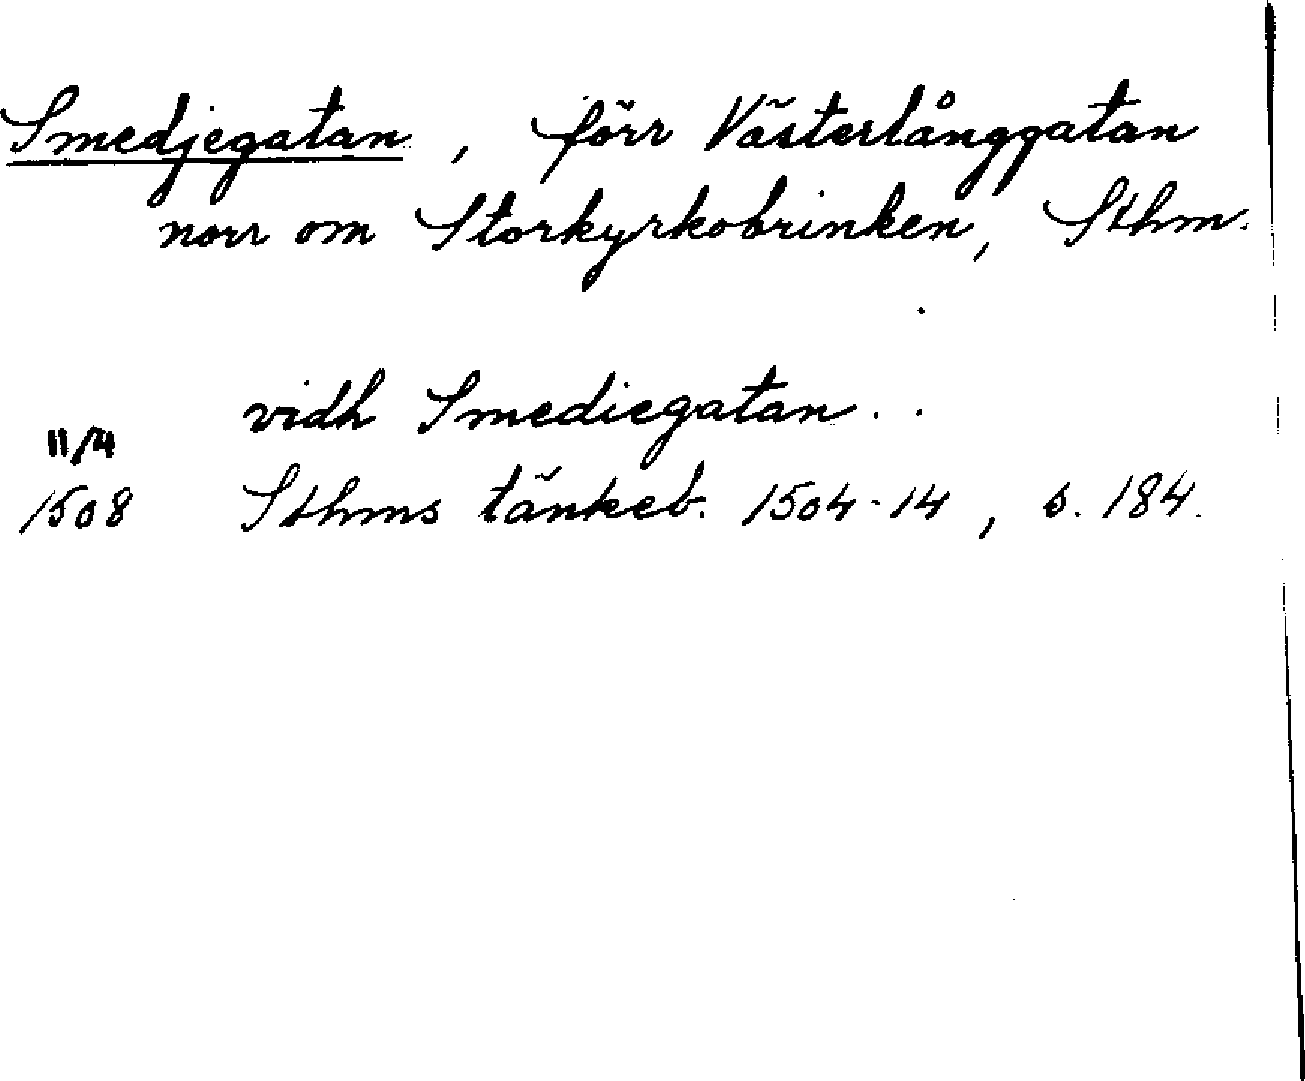 Smedjegatan, förr Västerlånggatan
norr om Storkyrkobrinken, Sthm.
vidh Smediegatan . .
11/4
1508 Sthms tänkeb. 1504-14, s. 184.